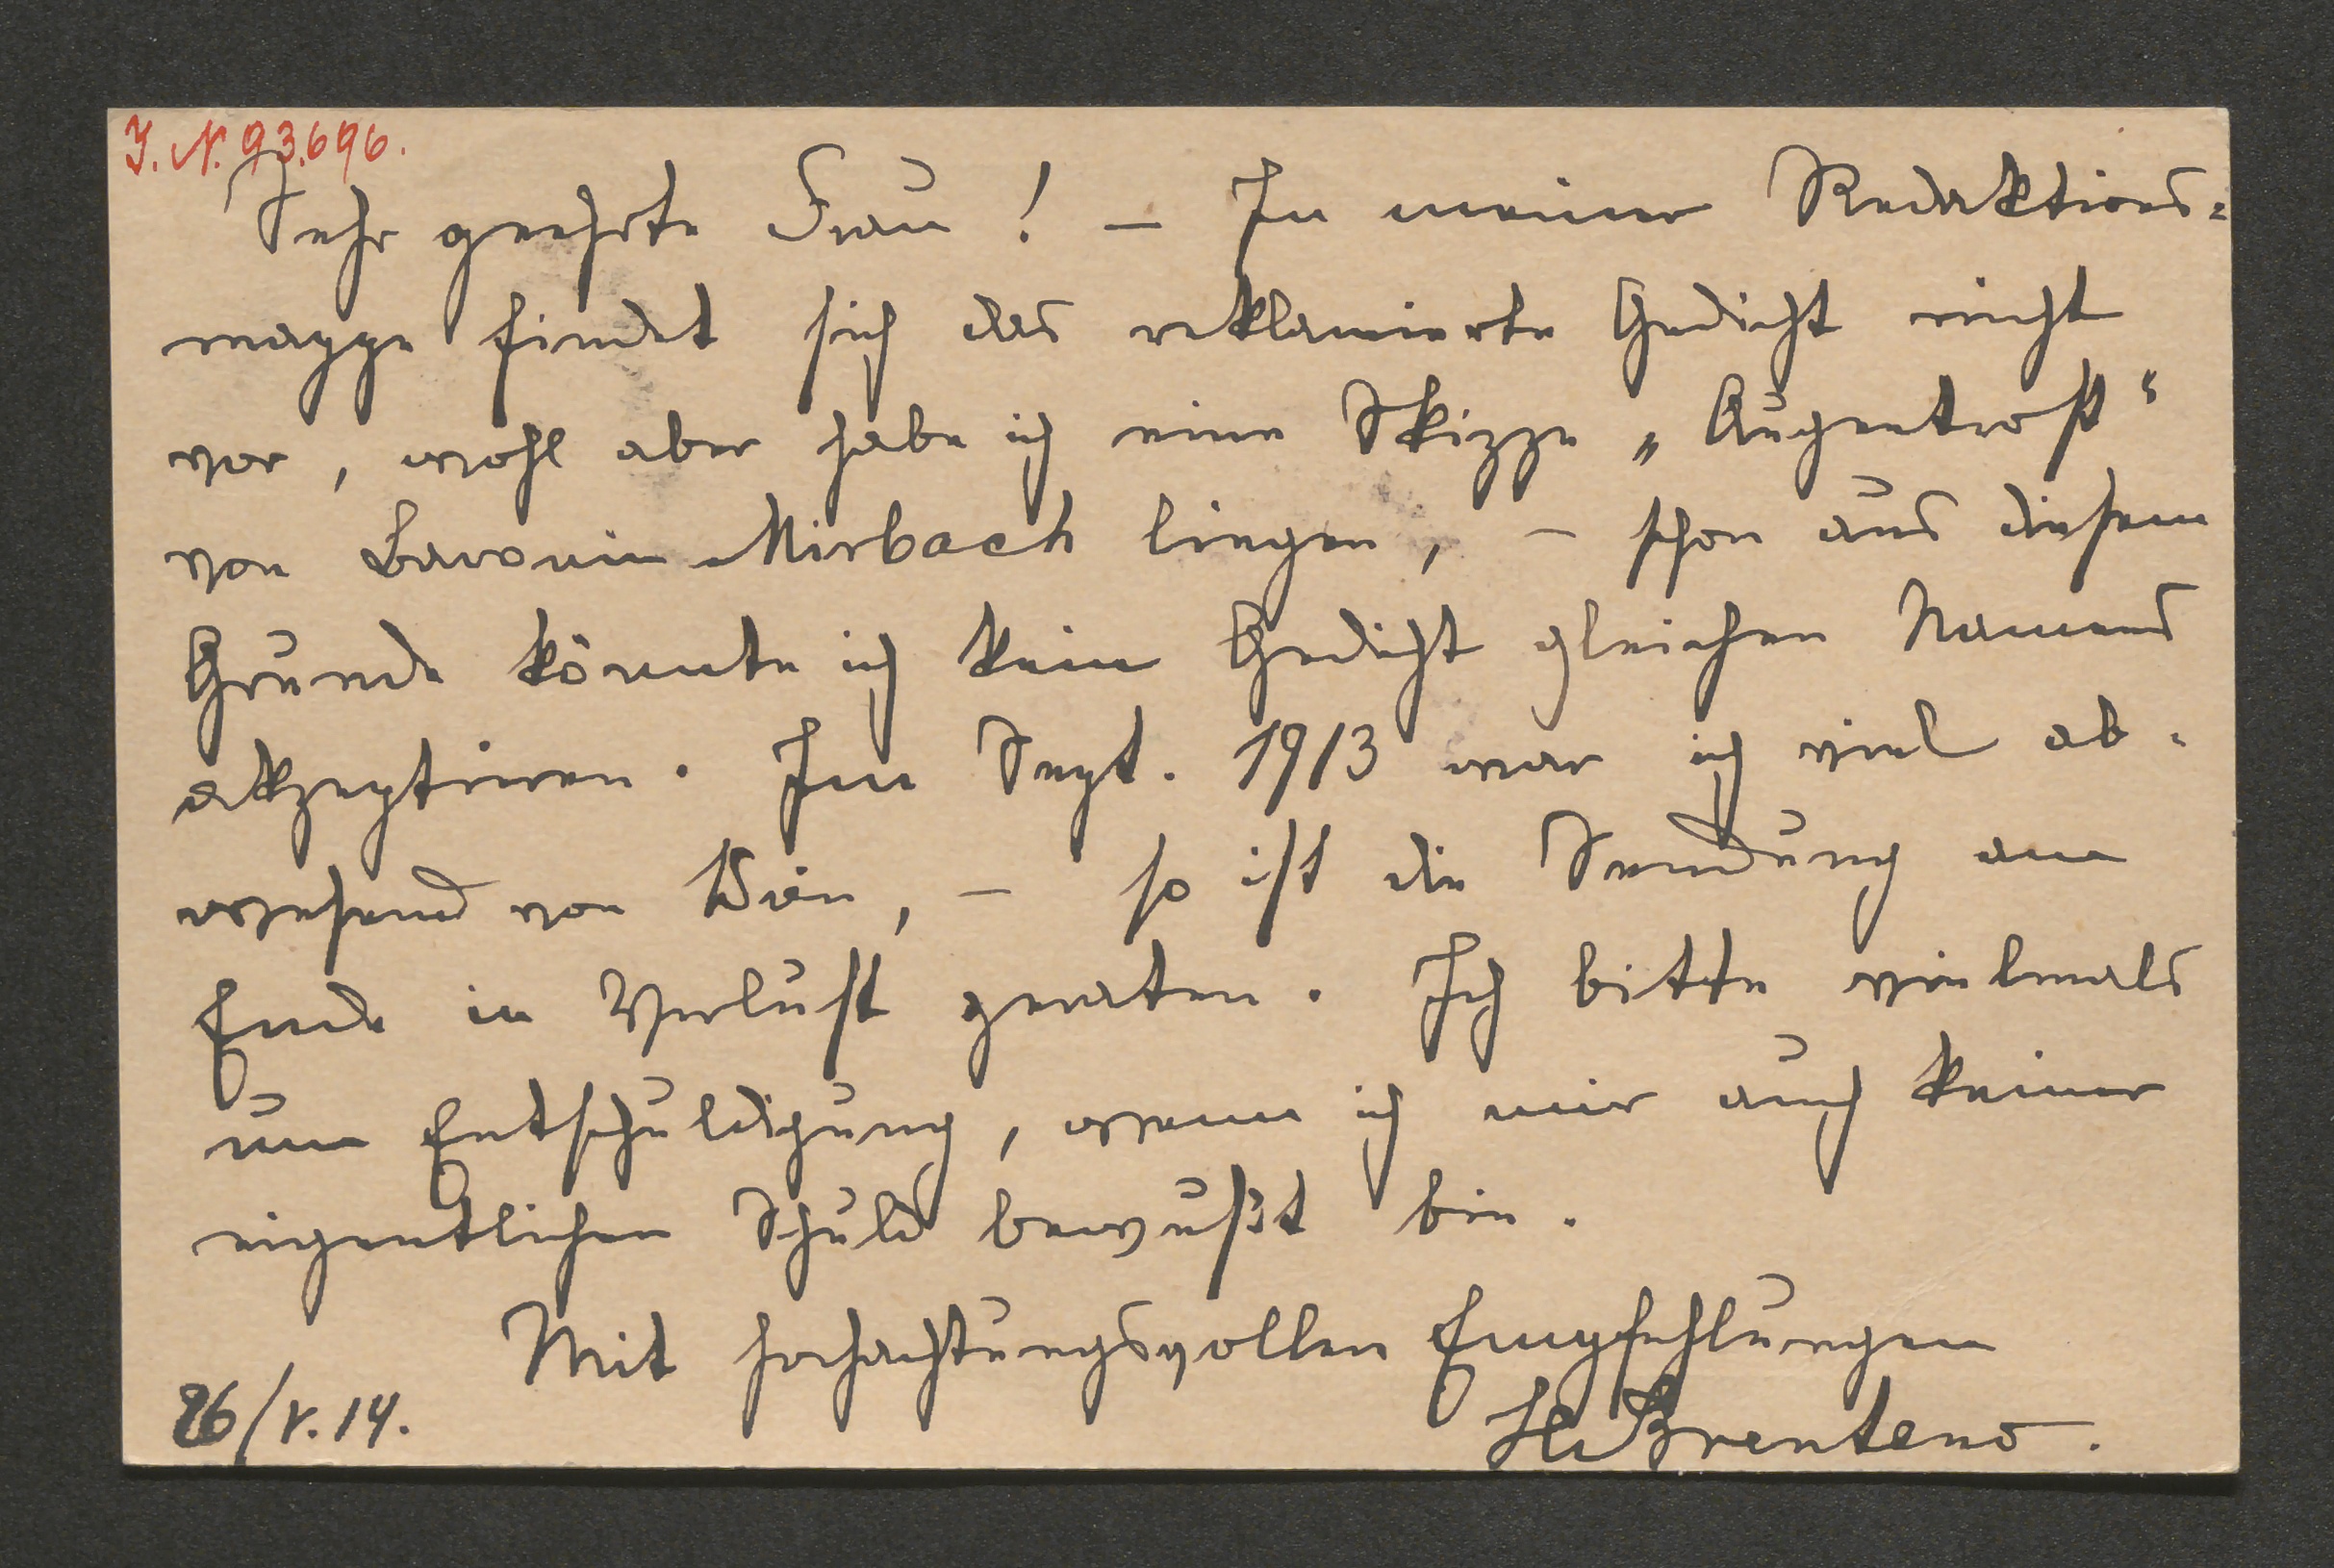 J. N. 93.696.
Sehr geehrte Frau! – In meiner Redaktions=
mappe findet sich das reklamierte Gedicht nicht
vor, wohl aber habe ich eine Skizze „Augentrost“
von Baronin Mirbach liegen, – schon aus diesem
Grunde könnte ich kein Gedicht gleichen Namens
akzeptiren. Im Sept. 1913 war ich viel ab-
wesend von Wien, – so ist die Sendung am
Ende in Verlust geraten. Ich bitte vielmals
um Entschuldigung, wenn ich mir auch keiner
eigentlichen Schuld bewußt bin.
Mit hochachtungsvollen Empfehlungen
26/V. 14.
H Brentano.